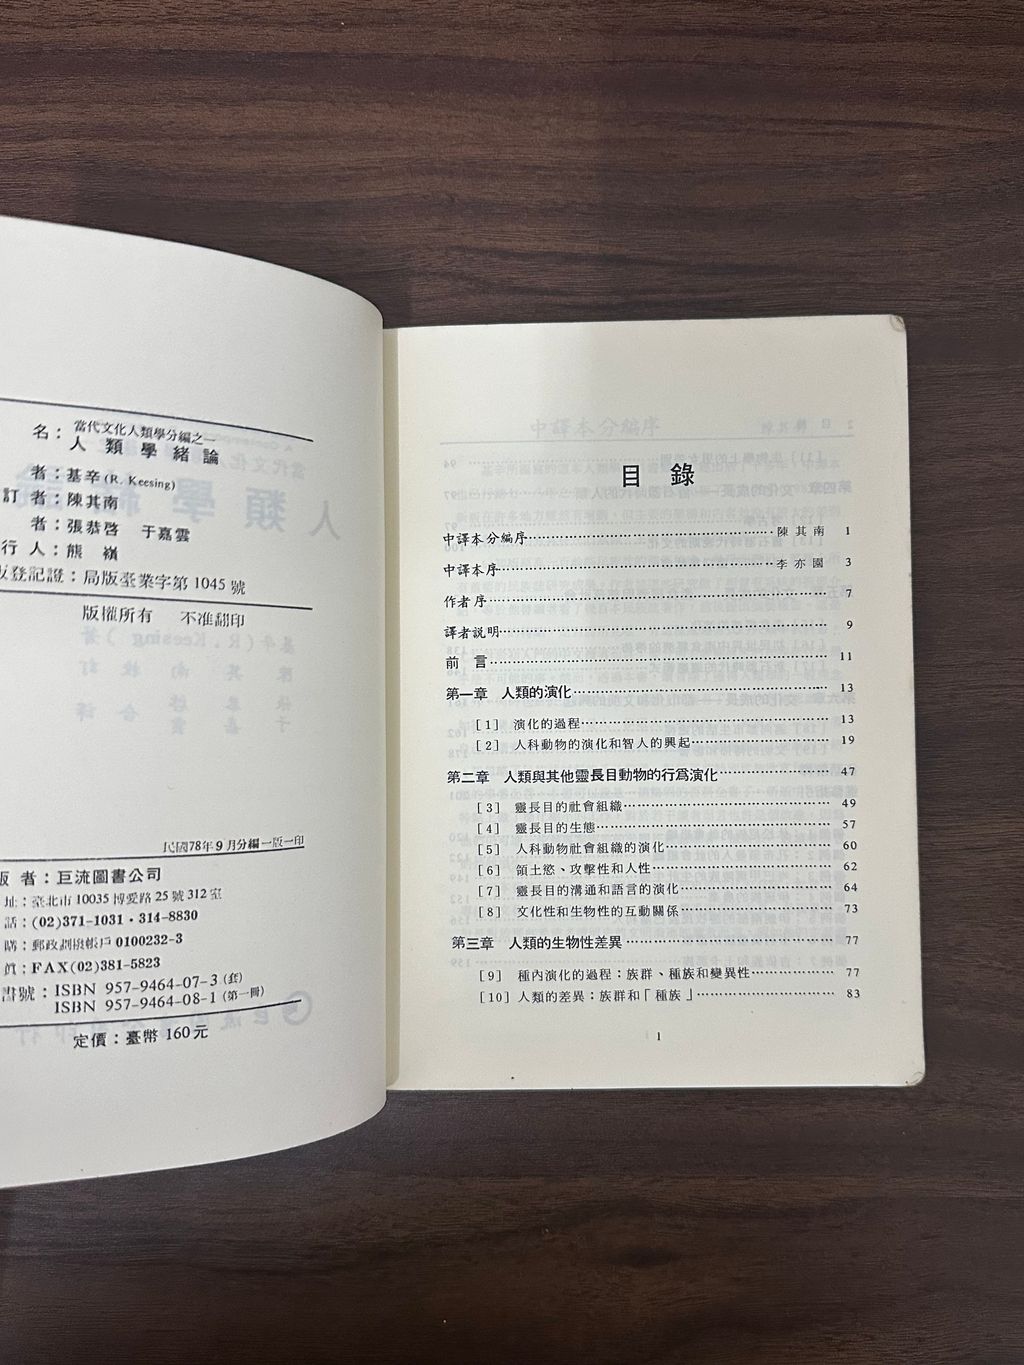 當代文化人類學分編之一
名：人類學緒論
者：基辛(R. Keesing)
訂者：陳其南
者：張恭啓 于嘉雲
行人：熊嶺
版登記證：局版臺業字第1045號
版權所有 不准翻印
民國78年9月分編一版一印
版者：巨流圖書公司
址：臺北市10035博愛路25號312室
話：(02)371-1031・314-8830
購：郵政劃撥帳戶0100232-3
眞：FAX(02)381-5823
書號：ISBN 957-9464-07-3(套)
ISBN 957-9464-08-1(第一冊)
定價：臺幣160元
目錄
中譯本分編序……陳其南 1
中譯本序……李亦園 3
作者序……7
譯者說明……9
前言……11
第一章 人類的演化……13
［1］ 演化的過程……13
［2］ 人科動物的演化和智人的興起……19
第二章 人類與其他靈長目動物的行爲演化……47
［3］ 靈長目的社會組織……49
［4］ 靈長目的生態……57
［5］ 人科動物社會組織的演化……60
［6］ 領土慾、攻擊性和人性……62
［7］ 靈長目的溝通和語言的演化……64
［8］ 文化性和生物性的互動關係……73
第三章 人類的生物性差異……77
［9］ 種內演化的過程：族群、種族和變異性……77
［10］人類的差異：族群和「種族」……83
1